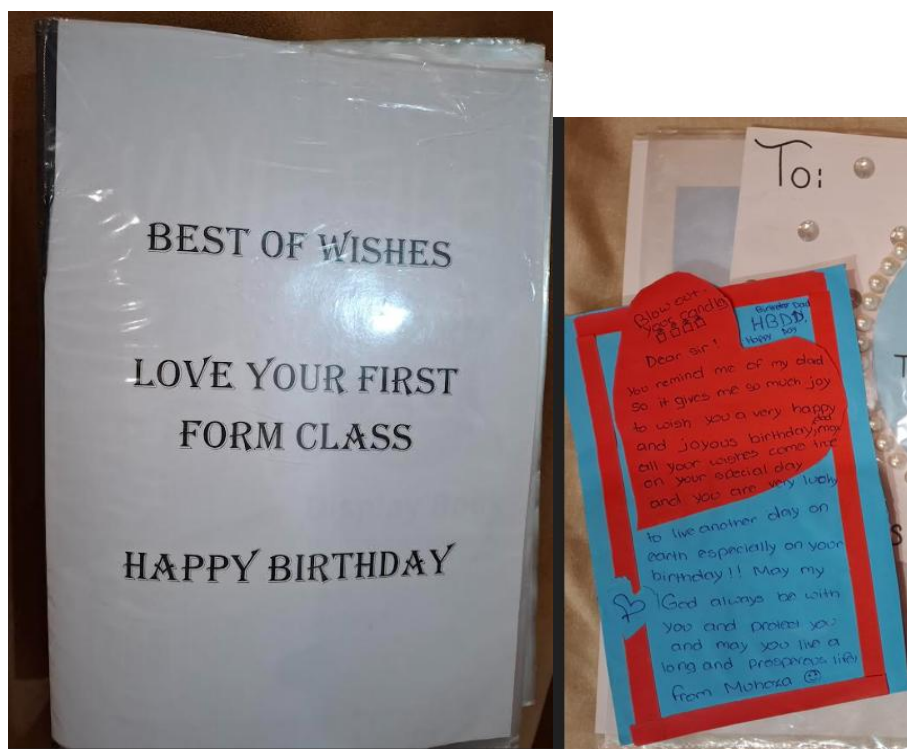 BEST OF WISHES
LOVE YOUR FIRST
FORM CLASS
HAPPY BIRTHDAY
To:
Blow out
your candles
HBDD!
Happy Day
Dear sir!
you remind me of my dad
so it gives me so much joy
to wish you a very happy
and joyous birthday, may
all your wishes come true
on your special day
and you are very lucky
to live another day on
earth especially on your
birthday!! May my
God always be with
you and protect you
and may you live a
long and prosperous life,
from